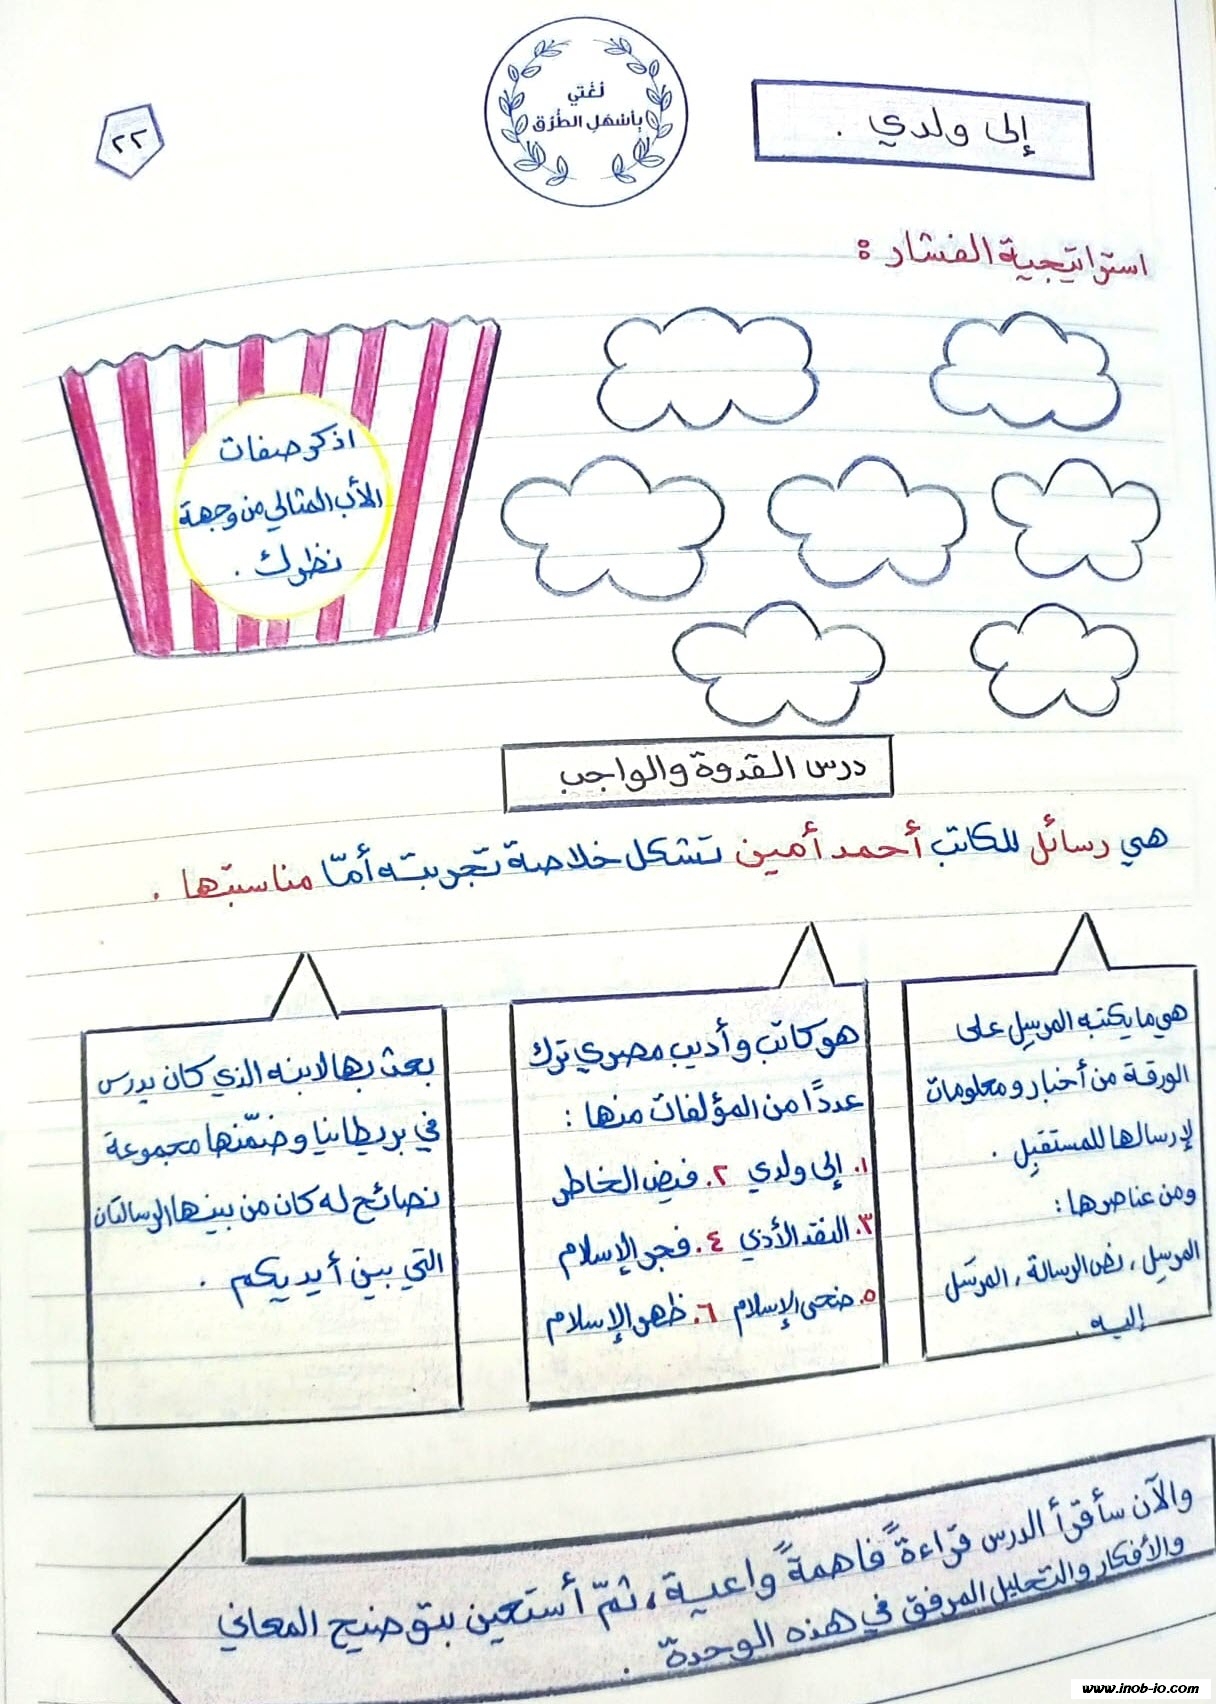 إلى ولدي .
لُغَتي
بِأَسْهَلِ الطُّرُق
٢٢
استراتيجية الفشار :
اذكر صفات
الأب المثالي من وجهة
نظرك .
درس القدوة والواجب
هي رسائل للكاتب أحمد أمين تشكل خلاصة تجربته أمّا مناسبتها .
هي ما يكتبه المرسِل على
الورقة من أخبار ومعلومات
لإرسالها للمستقبِل .
ومن عناصرها :
المرسِل , نص الرسالة , المرسَل
إليه .
هو كاتب وأديب مصري ترك
عددًا من المؤلفات منها :
١. إلى ولدي ٢. فيض الخاطر
٣. النقد الأدبي ٤. فجر الإسلام
٥. ضحى الإسلام ٦. ظهر الإسلام
بعث بها لابنه الذي كان يدرس
في بريطانيا وضمّنها مجموعة
نصائح له كان من بينها الرسالتان
التي بين أيديكم .
والآن سأقرأ الدرس قراءةً فاهمةً واعية ، ثمّ أستعين بتوضيح المعاني
والأفكار والتحليل المرفق في هذه الوحدة .
www.inob-io.com